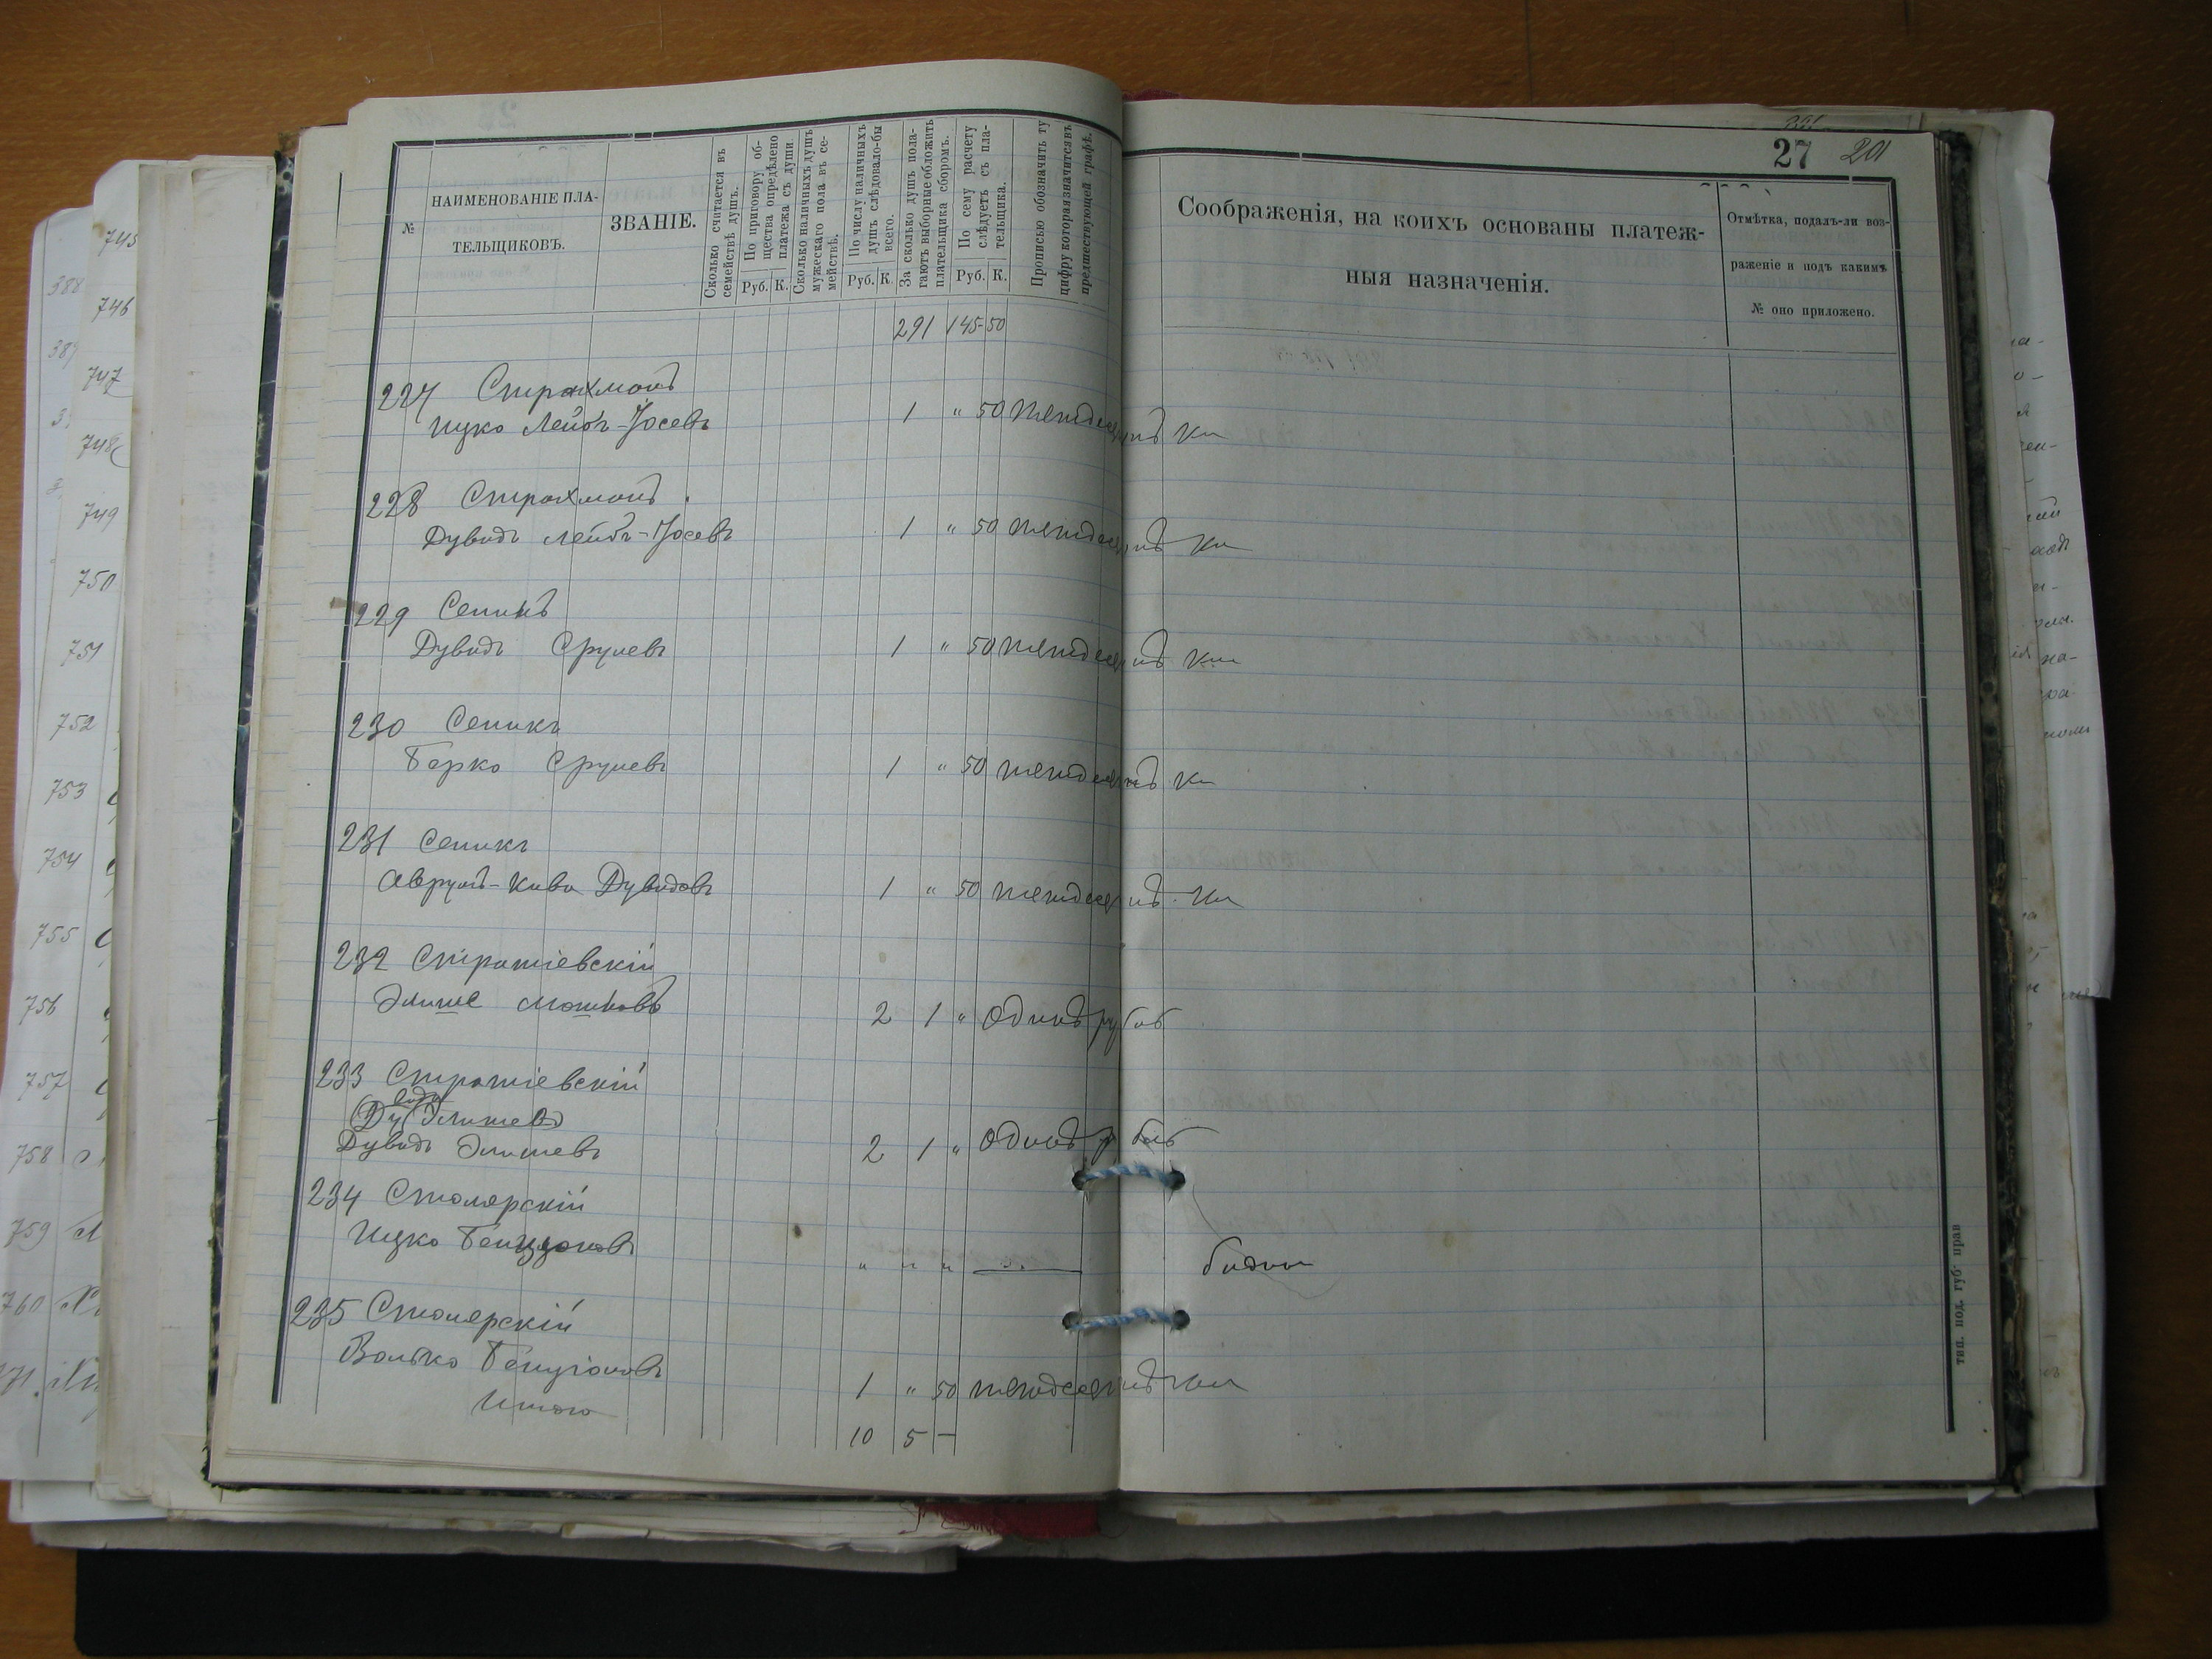 27 201
№
НАИМЕНОВАНІЕ ПЛА-
ТЕЛЬЩИКОВЪ.
ЗВАНІЕ.
Сколько считается въ
семействѣ душъ.
По приговору об-
щества опредѣлено
платежа съ души.
Руб. К.
Сколько наличныхъ душъ
мужескаго пола въ се-
мействѣ.
По числу наличныхъ
душъ слѣдовало-бы
всего.
Руб. К.
За сколько душъ пола-
гаютъ выборные обложить
плательщика сборомъ.
По сему расчету
слѣдуетъ съ пла-
тельщика.
Руб. К.
Прописью обозначить ту
цифру которая значится въ
предшествующей графѣ.
Соображенія, на коихъ основаны платеж-
ныя назначенія.
Отмѣтка, подалъ-ли воз-
раженіе и подъ какимъ
№ оно приложено.
291 145 50
227 Страхманъ
Ицко Лейбъ-Іосевъ 1 " 50 пятьдесятъ кп
228 Страхманъ
Дувидъ Лейбъ-Іосевъ 1 " 50 пятьдесятъ кп
229 Сепикъ
Дувидъ Срулевъ 1 " 50 пятьдесятъ кп
230 Сепикъ
Берко Срулевъ 1 " 50 пятьдесятъ кп
231 Сепикъ
Аврумъ-Кива Дувидовъ 1 " 50 пятьдесятъ кп
232 Стратіевскій
Элише Мошковъ 2 1 " Одинъ руб
233 Стратіевскій
Дувидъ Элишевъ 2 1 " Одинъ руб
234 Столярскій
Ицко Бенціоновъ " " " —
235 Столярскій
Волько Бенціоновъ 1 " 50 пятьдесятъ кп
Итого 10 5 —
тип. под. губ. прав
745
746
747
748
749
750
751
752
753
754
755
756
757
758
759
760
388